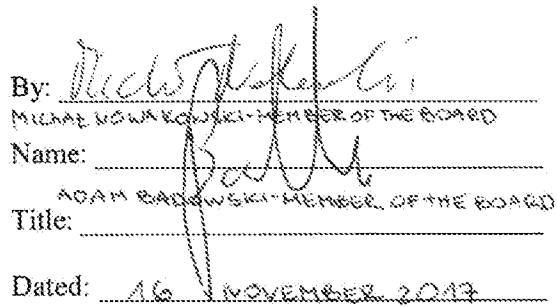 By:
MICHAŁ NOWAKOWSKI - MEMBER OF THE BOARD
Name:
ADAM BADOWSKI - MEMBER OF THE BOARD
Title:
Dated: 16 NOVEMBER 2017